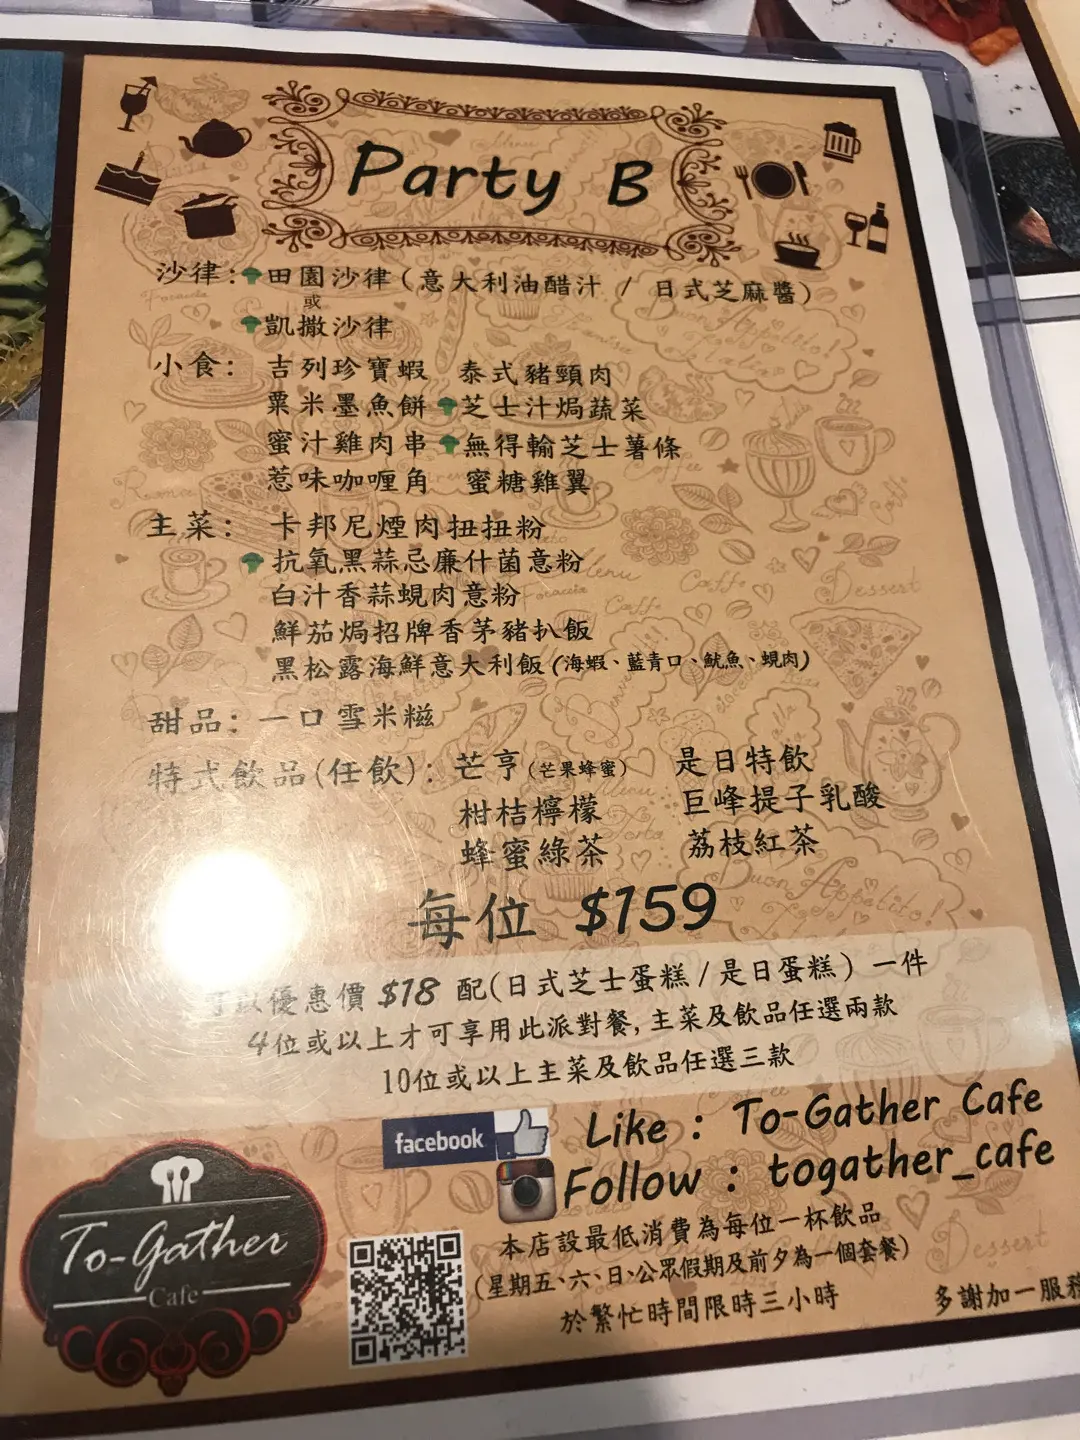 Party B
沙律：田園沙律（意大利油醋汁 / 日式芝麻醬）
或
凱撒沙律
小食： 吉列珍寶蝦 泰式豬頸肉
粟米墨魚餅 芝士汁焗蔬菜
蜜汁雞肉串 無得輸芝士薯條
惹味咖喱角 蜜糖雞翼
主菜： 卡邦尼煙肉扭扭粉
抗氧黑蒜忌廉什菌意粉
白汁香蒜蜆肉意粉
鮮茄焗招牌香茅豬扒飯
黑松露海鮮意大利飯(海蝦、藍青口、魷魚、蜆肉)
甜品：一口雪米糍
特式飲品(任飲)：芒亨(芒果蜂蜜) 是日特飲
柑桔檸檬 巨峰提子乳酸
蜂蜜綠茶 荔枝紅茶
每位 $159
可以優惠價 $18 配(日式芝士蛋糕 / 是日蛋糕) 一件
4位或以上才可享用此派對餐, 主菜及飲品任選兩款
10位或以上主菜及飲品任選三款
facebook Like : To-Gather Cafe
Follow : togather_cafe
本店設最低消費為每位一杯飲品
(星期五、六、日、公眾假期及前夕為一個套餐)
於繁忙時間限時三小時
多謝加一服務
To-Gather
Cafe